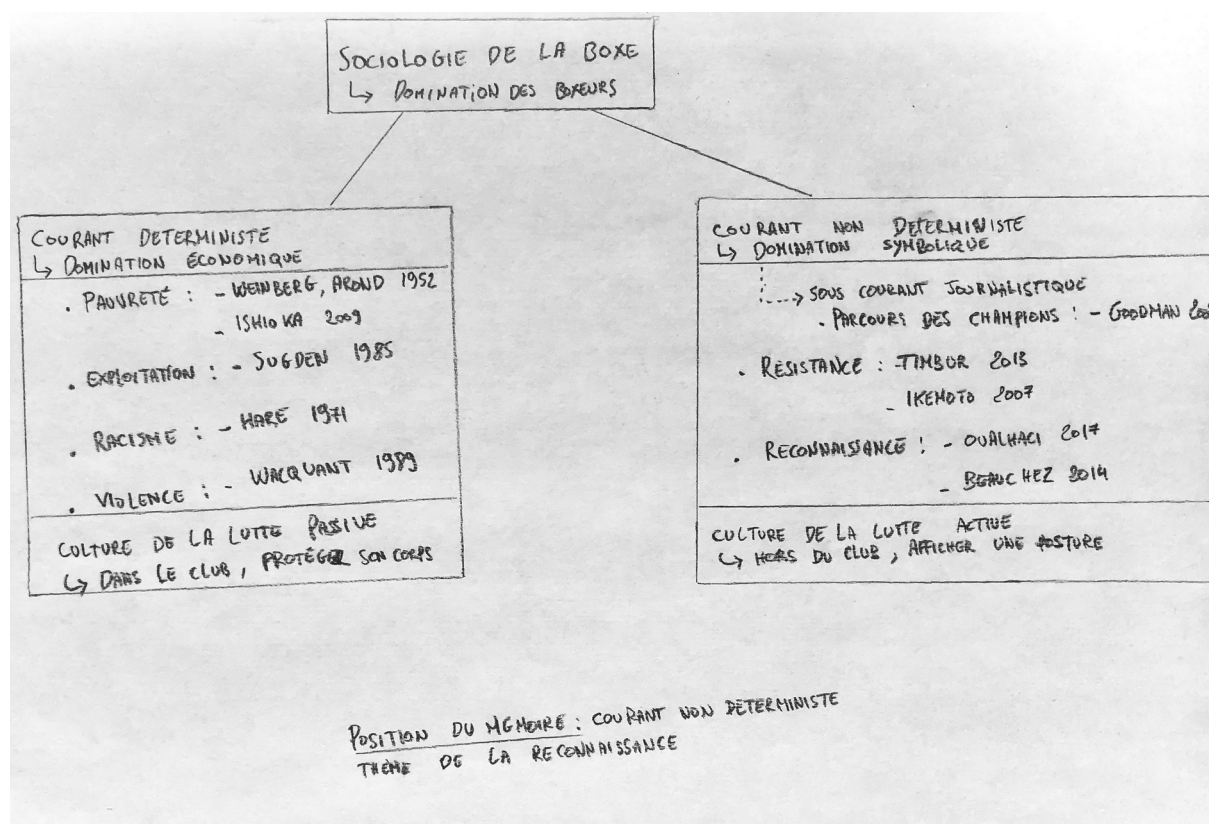 SOCIOLOGIE DE LA BOXE
↳ DOMINATION DES BOXEURS
COURANT DETERMINISTE
↳ DOMINATION ÉCONOMIQUE
. PAUVRETÉ : - WEINBERG, AROND 1952
- ISHIOKA 2009
. EXPLOITATION : - SUGDEN 1985
. RACISME : - HARE 1971
. VIOLENCE : - WACQUANT 1989
CULTURE DE LA LUTTE PASSIVE
↳ DANS LE CLUB, PROTÉGER SON CORPS
COURANT NON DETERMINISTE
↳ DOMINATION SYMBOLIQUE
→ SOUS COURANT JOURNALISTIQUE
. PARCOURS DES CHAMPIONS : - GOODMAN
. RÉSISTANCE : - TIMBUR 2013
- IKEMOTO 2007
. RECONNAISSANCE : - OUALHACI 2017
- BEAUCHEZ 2014
CULTURE DE LA LUTTE ACTIVE
↳ HORS DU CLUB, AFFICHER UNE POSTURE
POSITION DU MÉMOIRE : COURANT NON DETERMINISTE
THÈME DE LA RECONNAISSANCE